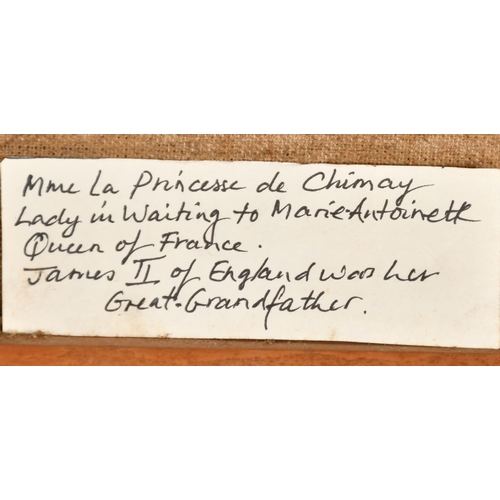 Mme La Princesse de Chimay
Lady in Waiting to Marie-Antoinette
Queen of France.
James II of England was her
Great-Grandfather.